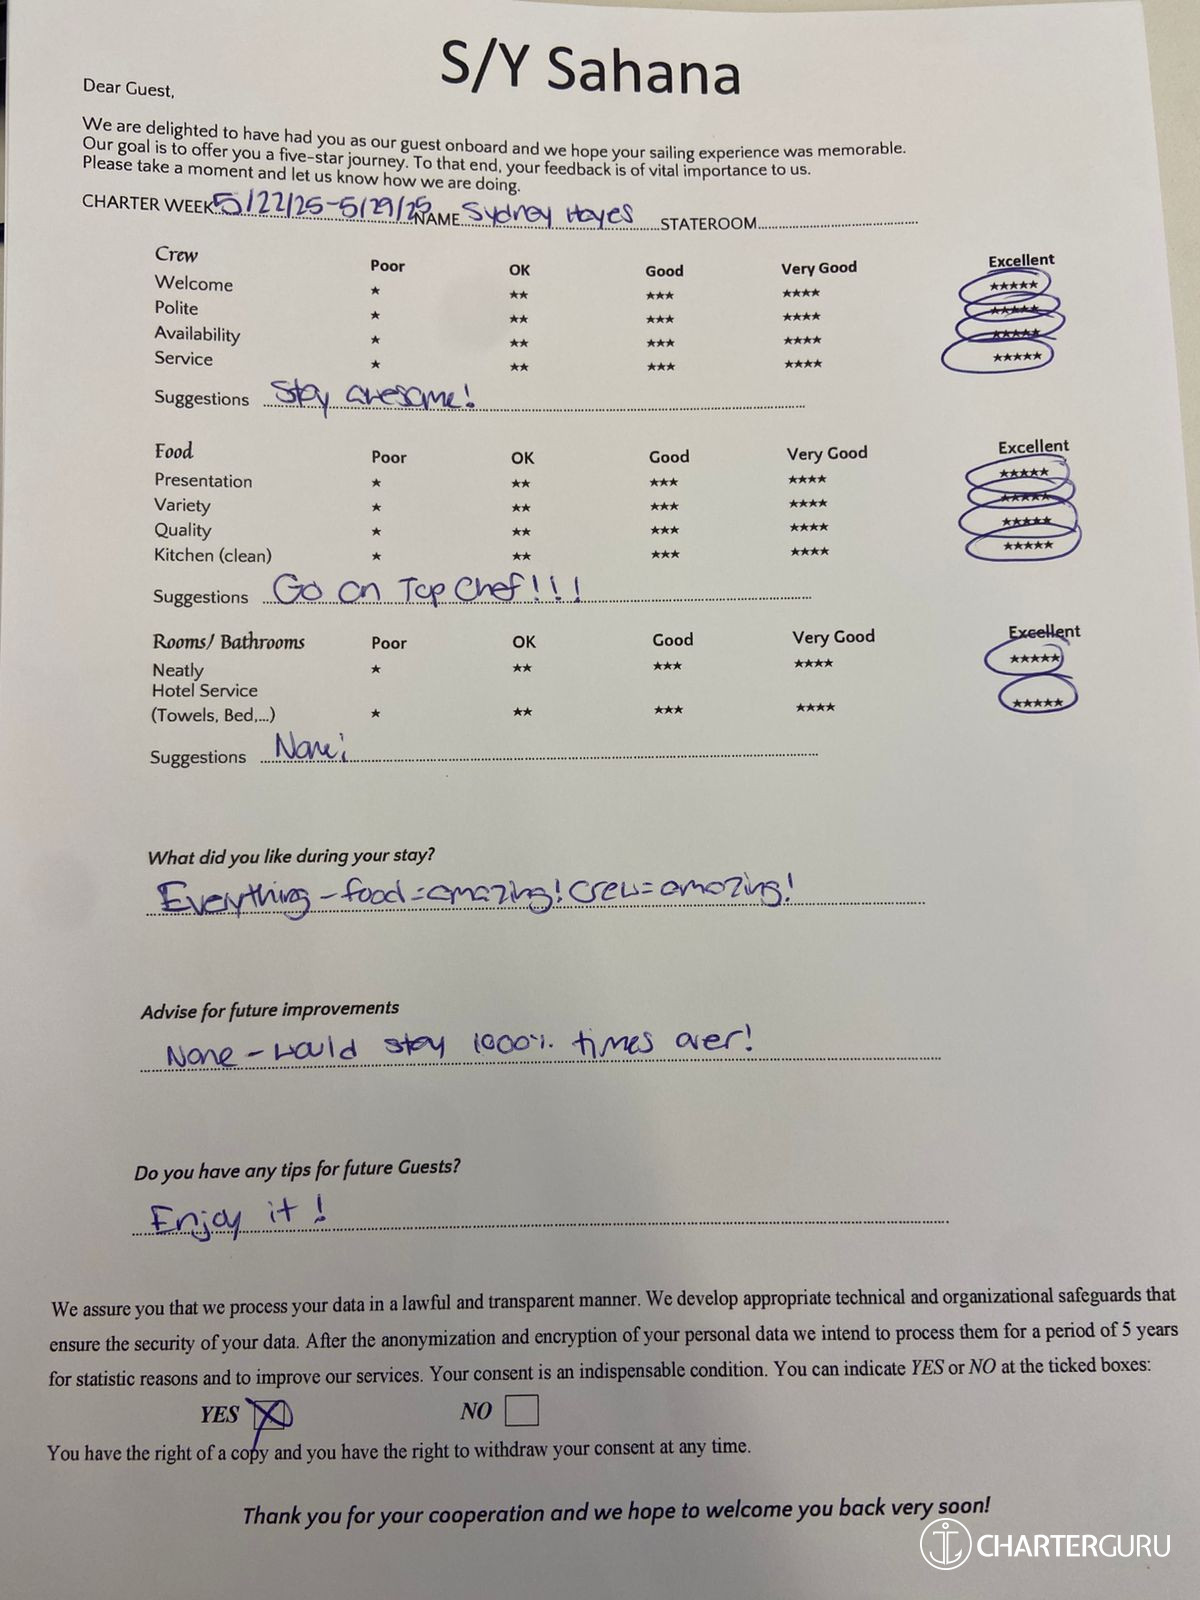 S/Y Sahana
Dear Guest,
We are delighted to have had you as our guest onboard and we hope your sailing experience was memorable.
Our goal is to offer you a five-star journey. To that end, your feedback is of vital importance to us.
Please take a moment and let us know how we are doing.
CHARTER WEEK 5/22/25-5/29/25 NAME Sydney Hayes STATEROOM
Crew Poor OK Good Very Good Excellent
Welcome ★ ★★ ★★★ ★★★★ ★★★★★
Polite ★ ★★ ★★★ ★★★★ ★★★★★
Availability ★ ★★ ★★★ ★★★★ ★★★★★
Service ★ ★★ ★★★ ★★★★ ★★★★★
Suggestions Stay awesome!
Food Poor OK Good Very Good Excellent
Presentation ★ ★★ ★★★ ★★★★ ★★★★★
Variety ★ ★★ ★★★ ★★★★ ★★★★★
Quality ★ ★★ ★★★ ★★★★ ★★★★★
Kitchen (clean) ★ ★★ ★★★ ★★★★ ★★★★★
Suggestions Go on Top Chef!!!
Rooms/ Bathrooms Poor OK Good Very Good Excellent
Neatly ★ ★★ ★★★ ★★★★ ★★★★★
Hotel Service
(Towels, Bed,...) ★ ★★ ★★★ ★★★★ ★★★★★
Suggestions None!
What did you like during your stay?
Everything - food = amazing! crew = amazing!
Advise for future improvements
None - would stay 1000% times over!
Do you have any tips for future Guests?
Enjoy it!
We assure you that we process your data in a lawful and transparent manner. We develop appropriate technical and organizational safeguards that
ensure the security of your data. After the anonymization and encryption of your personal data we intend to process them for a period of 5 years
for statistic reasons and to improve our services. Your consent is an indispensable condition. You can indicate YES or NO at the ticked boxes:
YES X NO
You have the right of a copy and you have the right to withdraw your consent at any time.
Thank you for your cooperation and we hope to welcome you back very soon!
CHARTERGURU